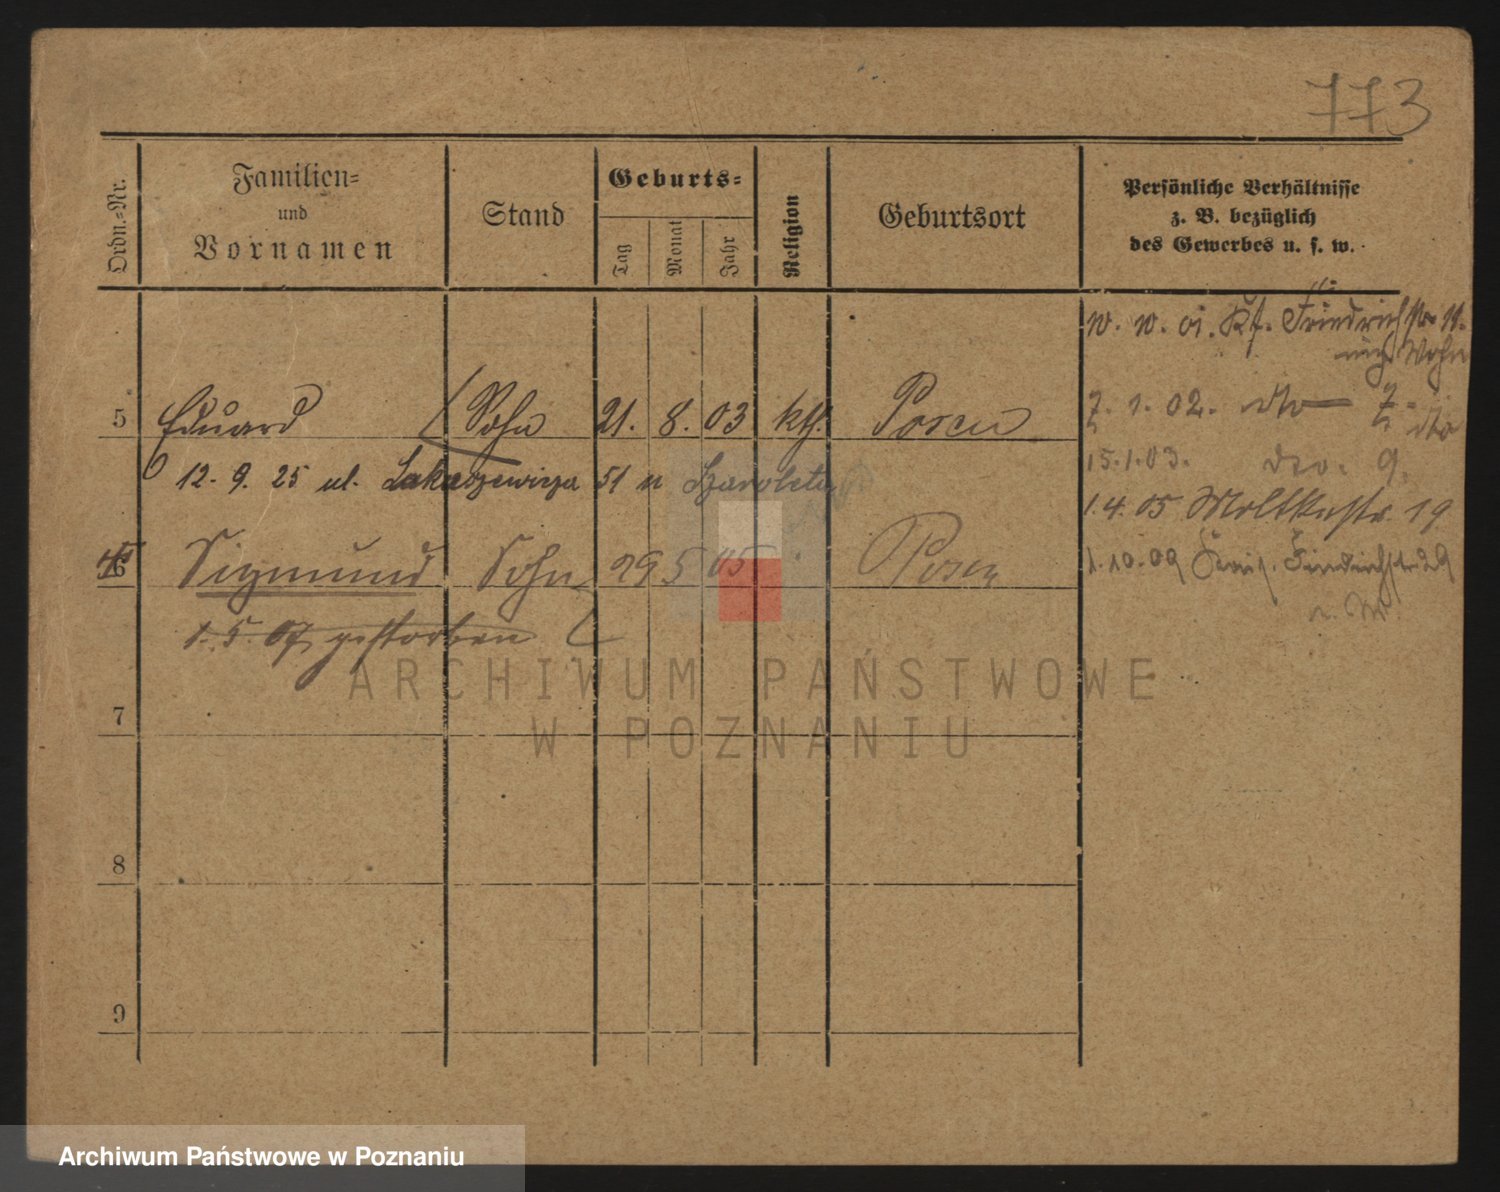 773
Ordn.-Nr.
Familien-
und
Vornamen
Stand
Geburts-
Tag
Monat
Jahr
Religion
Geburtsort
Persönliche Verhältnisse
z. B. bezüglich
des Gewerbes u. s. w.
Friedrichstr.
5 Eduard Sohn 21. 8. 03 kth. Posen
12. 9. 25 ul. Szaroleta
6 Sigmund Sohn 29 5 05 Posen
1. 5. 07 gestorben
7. 1. 02. dto
15.1.03. dto. 9.
1.4.05 Moltkestr. 19
1.10.09 Friedrichstr. 29
7
8
9
ARCHIWUM PAŃSTWOWE
W POZNANIU
Archiwum Państwowe w Poznaniu